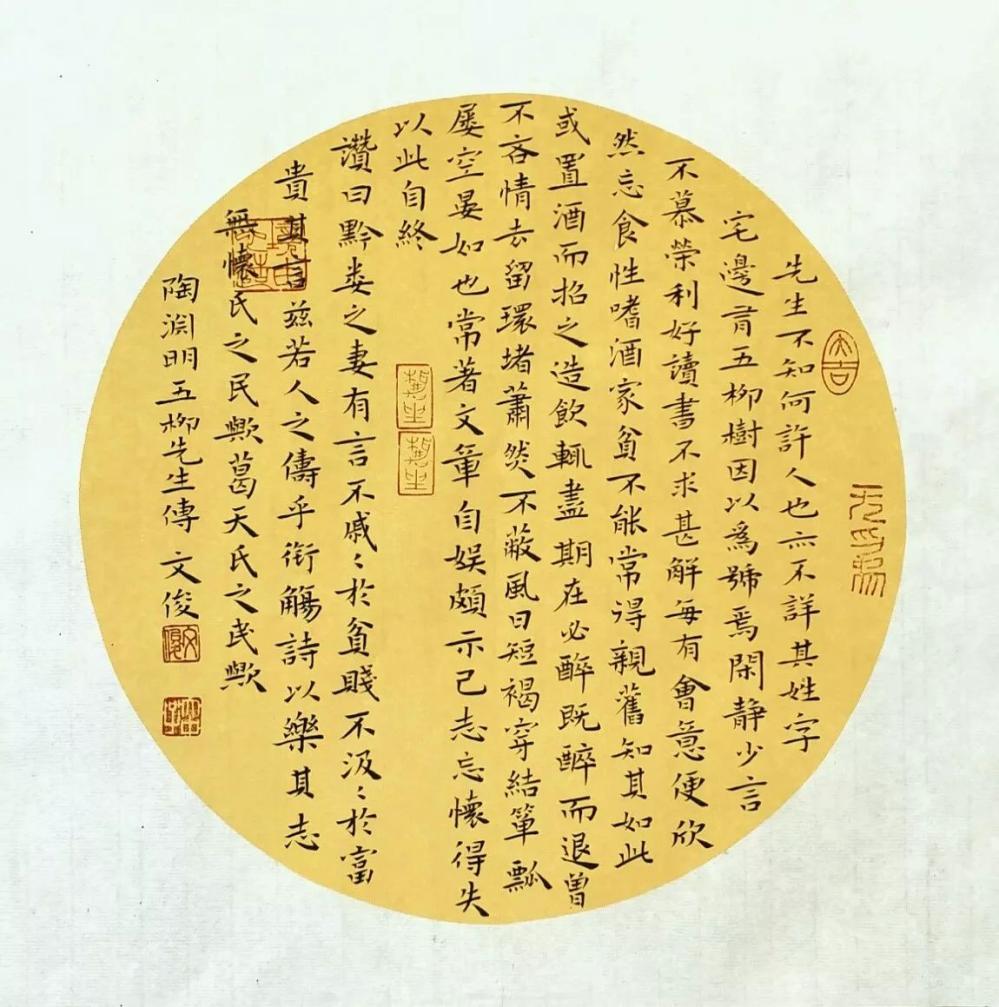 先生不知何許人也亦不詳其姓字
宅邊有五柳樹因以為號焉閑靜少言
不慕榮利好讀書不求甚解每有會意便欣
然忘食性嗜酒家貧不能常得親舊知其如此
或置酒而招之造飲輒盡期在必醉既醉而退曾
不吝情去留環堵蕭然不蔽風日短褐穿結簞瓢
屢空晏如也常著文章自娛頗示己志忘懷得失
以此自終
讚曰黔婁之妻有言不戚〻於貧賤不汲〻於富
貴其言茲若人之儔乎銜觴詩以樂其志
無懷氏之民歟葛天氏之民歟
陶淵明五柳先生傳 文俊
大吉